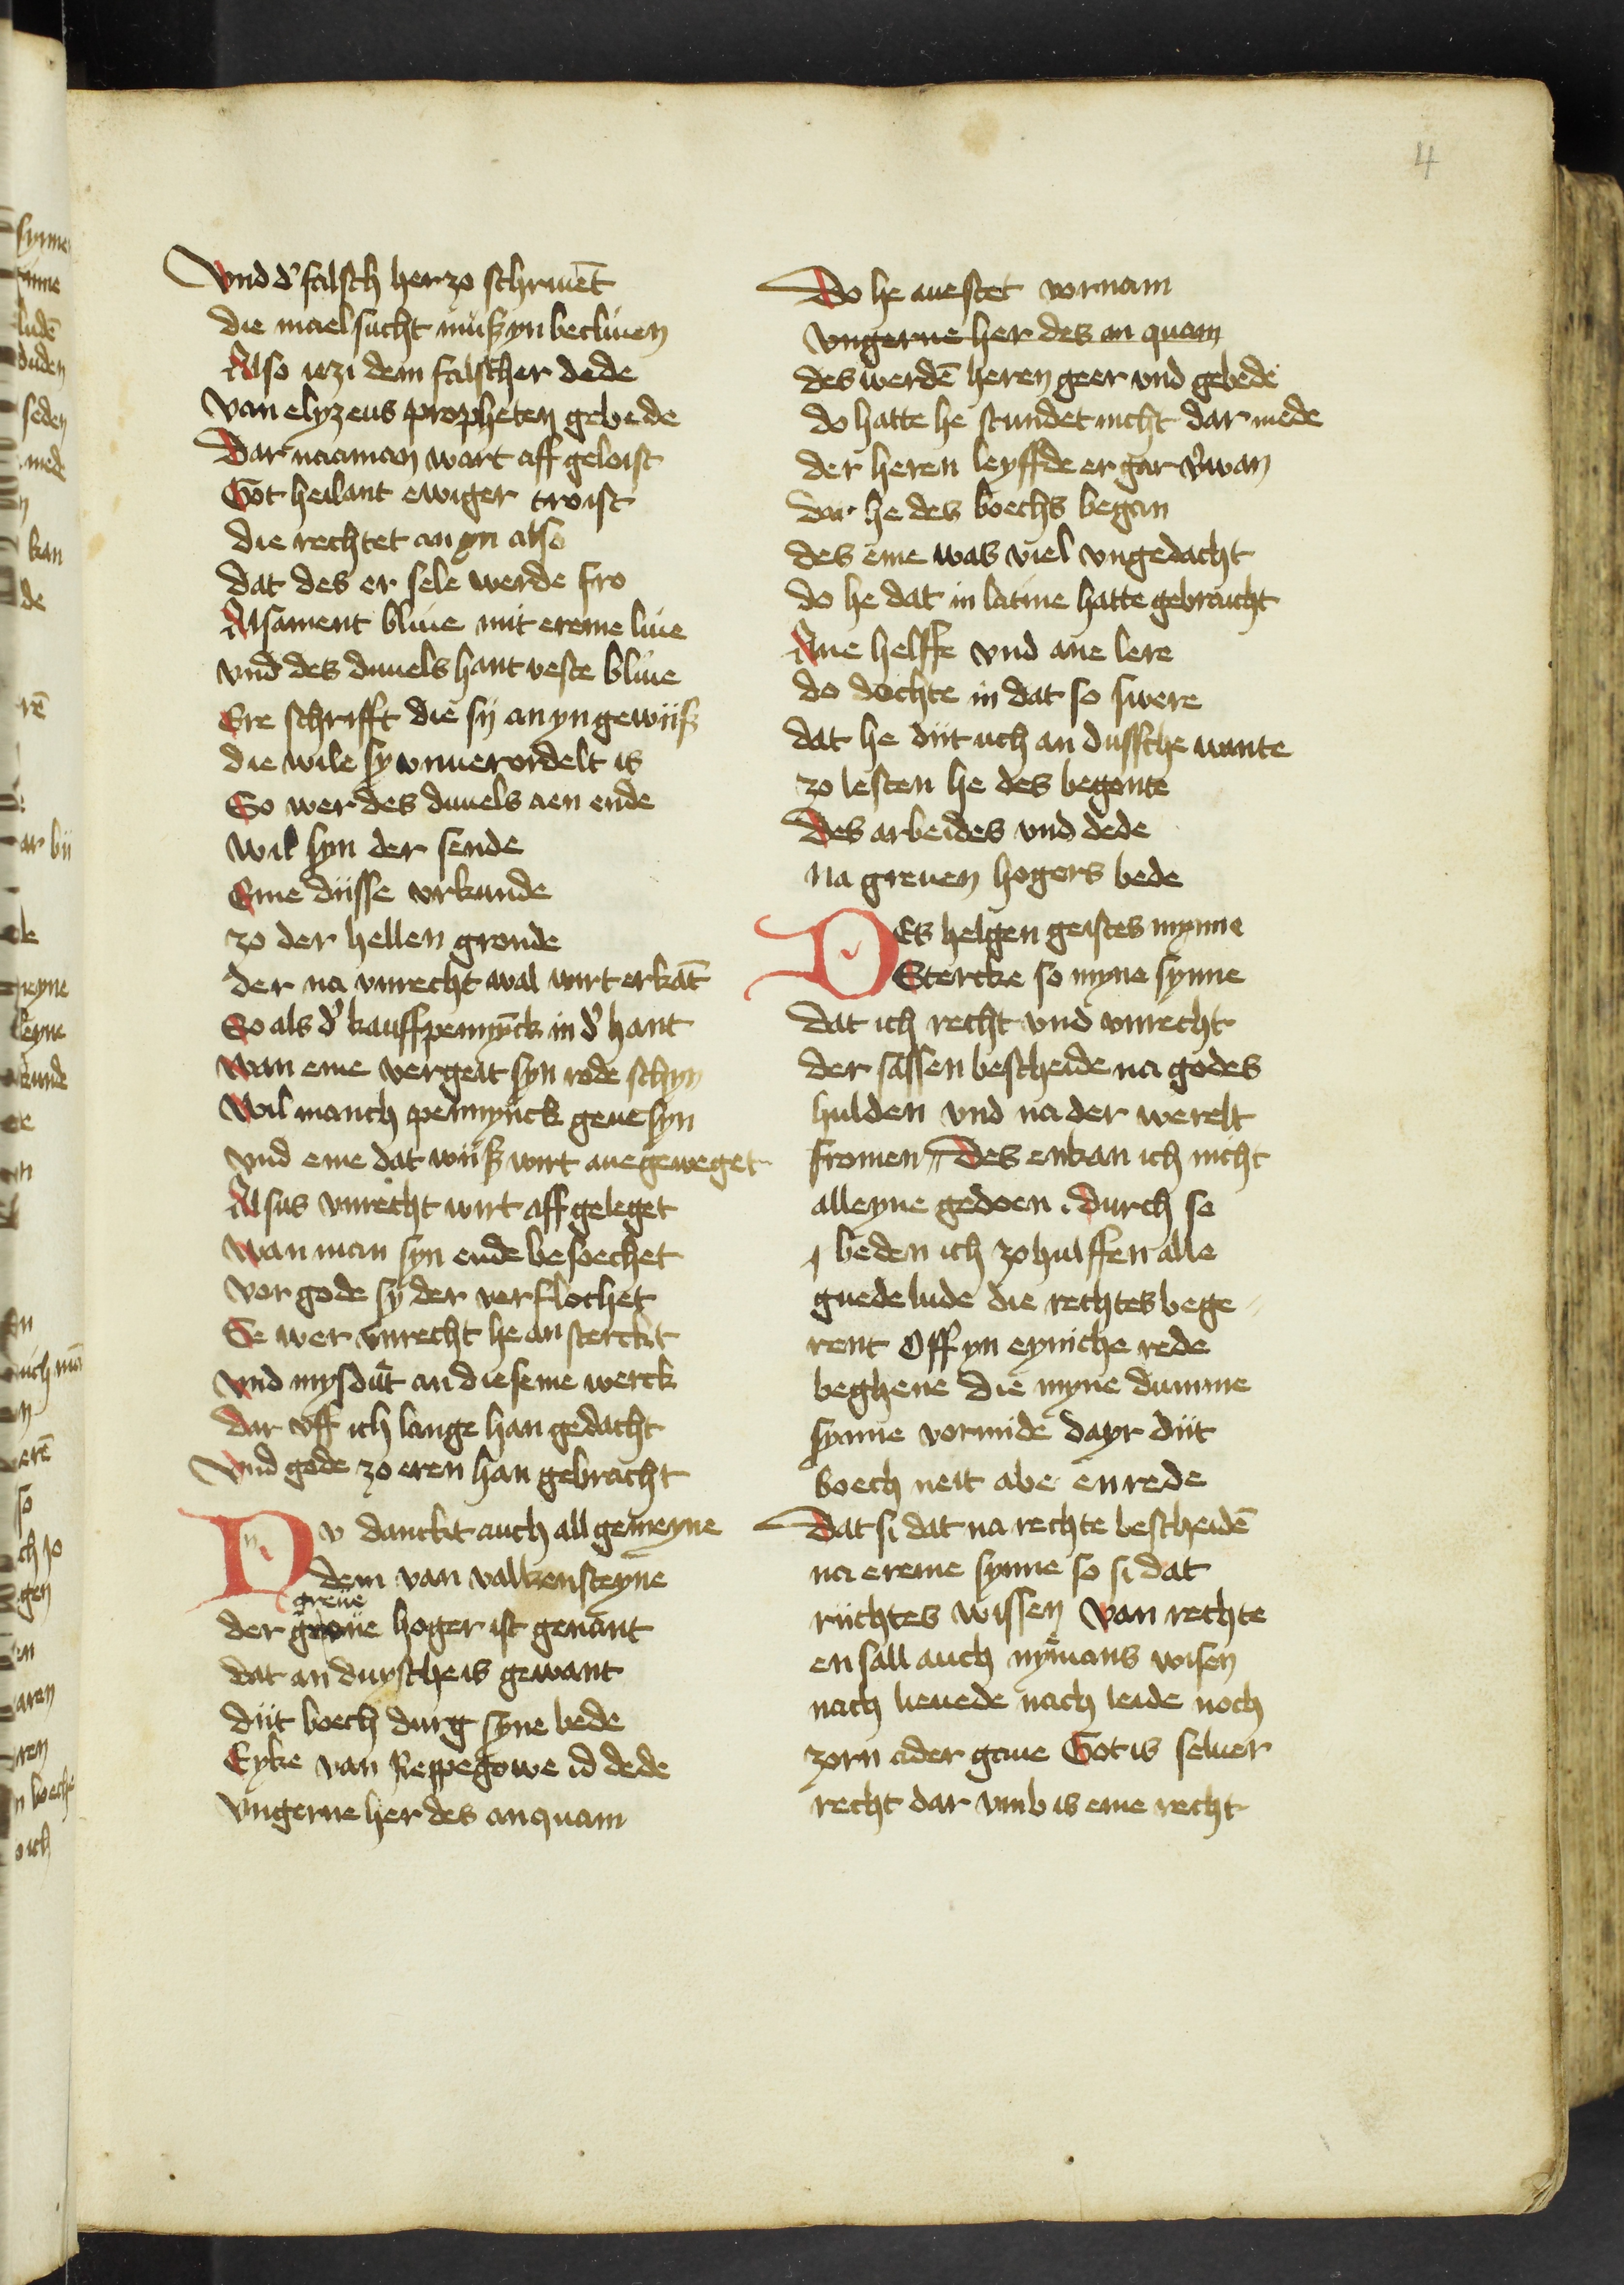 4
Vnd d' falsch her zo schriuēt
die maelsucht müß yn becliuen
Also iezi dem falscher dede
van elyzeus propheten gebede
Dar naaman wart aff geloist
Got heilant ewiger troist
die rechtet an yn also
dat des er sele werde fro
Alsament bliue mit ereme liue
vnd des duuels hant veste bliue
Ere schrifft die sij an yn gewijß
die wile sy vnuerordelt is
So wer des duuels aen ende
wil syn der sende
Eme düsse vrkunde
zo der hellen gronde
der na vnrecht wal wirt erkāt
So als d' kauffpennyck in d' hant
wan eme vergeit syn rode schyn
wil manch pennynck geue syn
vnd eme dat wijß wirt auegeweget
Alsus vnrecht wirt aff geleget
wan man syn ende besoechet
vor gode sy der verflochet
Se wer vnrecht he an sterckt
vnd mysdut an dieseme werck
dar vff ich lange han gedacht
Vnd gode zo eren han gebracht
Nv danckt auch all gemeyne
dem van valkensteyne
greue
der groue hoger ist genant
dat an duysche is gewant
düt boech durg syne bede
Eyke van Reppegowe id dede
vngerne her des anquam
Do he auestet vornam
vngerne her des an quam
des werdē heren geer vnd gebede
do hatte he stundet nicht dar mede
der heren leyffde er gar v'wan
dar he des boechs began
des eme was viel vngedacht
do he dat in latine hatte gebraucht
Ane helffe vnd ane lere
do dochte in dat so swere
dat he düt uch an dussche wante
zo lesten he des begonte
Des arbeides vnd dede
na greuen hogers bede
DEs helgen geistes mynne
Stercke so myne synne
dat ich recht vnd vnrecht
der sassen bescheide na godes
hulden vnd na der werelt
fromen Des enkan ich nicht
alleyne gedoen. durch so
beden ich zo hulffen alle
guede lude die rechtes bege
rent Off yn eyniche rede
beghene die myne dumme
synne vormide dayr düt
boech neit abe en rede
Dat si dat na rechte bescheidē
na ereme synne so si dat
rüchtes wissen Van rechte
en sall auch nymans wisen
nach lieuede nach leide noch
zorn ader gaue Got is seluer
recht dar vmb is eme recht